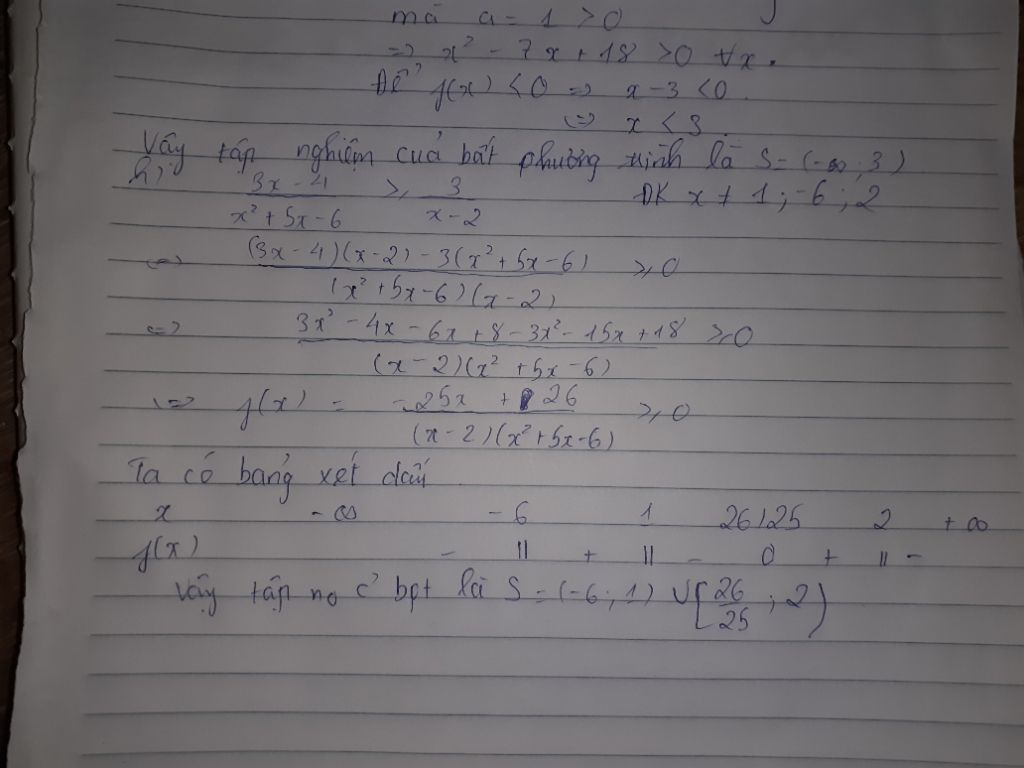 mà a = 1 > 0
=> x² - 7x + 18 > 0 ∀x.
Để f(x) < 0 => x - 3 < 0.
<=> x < 3.
Vậy tập nghiệm của bất phương trình là S = (-∞; 3)
h) (3x - 4)/(x² + 5x - 6) ≥ 3/(x - 2) ĐK x ≠ 1; -6; 2
<=> ((3x - 4)(x - 2) - 3(x² + 5x - 6))/((x² + 5x - 6)(x - 2)) ≥ 0
<=> (3x² - 4x - 6x + 8 - 3x² - 15x + 18)/((x - 2)(x² + 5x - 6)) ≥ 0
<=> f(x) = (-25x + 26)/((x - 2)(x² + 5x - 6)) ≥ 0
Ta có bảng xét dấu
x -∞ -6 1 26/25 2 +∞
f(x) - || + || - 0 + || -
Vậy tập no c̉ bpt là S = (-6; 1) ∪ [26/25; 2)